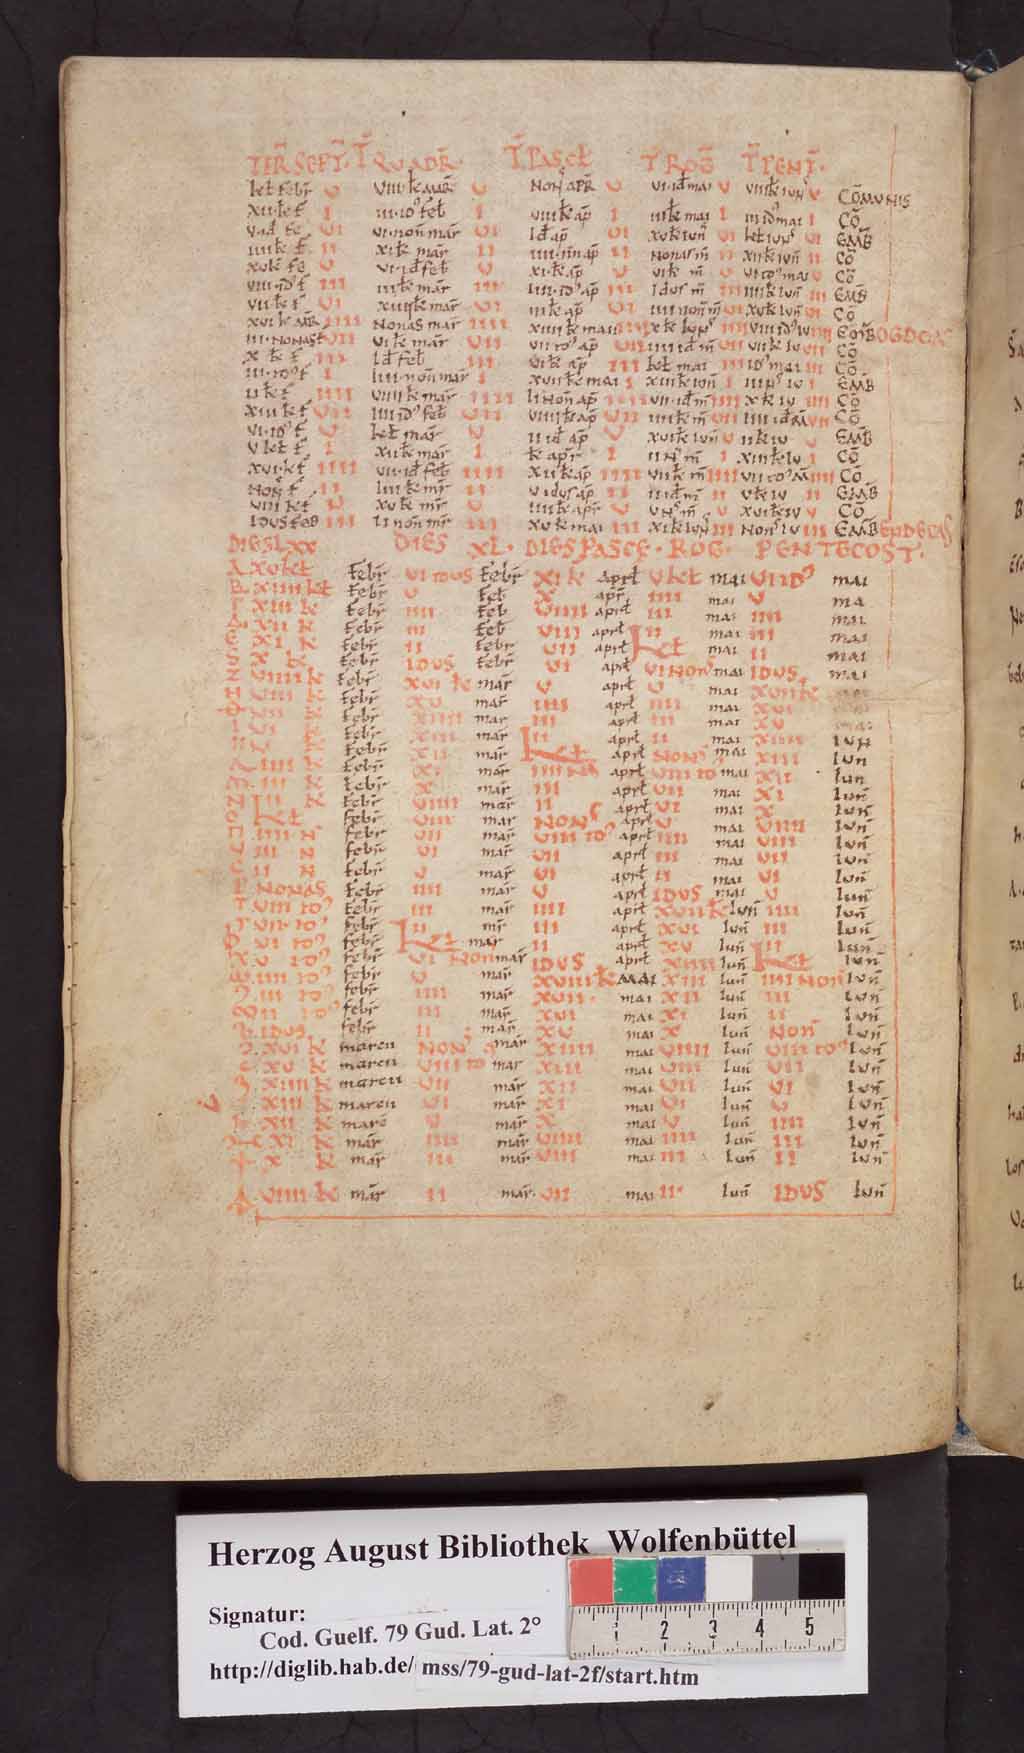 TER̄ SEPT̄. T̄ QVADR̄. T̄ PASCħ T̄ ROḠ T̄ PENT̄.
kał febr̄ V VIII kł MAR̄ V NON apR̄ V VI id mai V VIII kł iun̄ V CŌMVNIS
XII kał f̄ I III id' feb̄ I VIIII kł ap̄ I IIII kł mai I III id mai I CŌ
VI non mar̄ VI id ap̄ VI XV kł iun̄ VI kał iun̄ VI EMB̄
IIII kł f̄ II XI kł mar̄ II IIII non ap̄ II nonas m̄ II XII kł iun̄ II CŌ
XV kał fe V VI id feb̄ V XI kł ap̄ V VI kł m̄ V VI id' mai V CŌ
VIII id' f̄ III III kł mar̄ III IIII id' ap̄ III idus m̄ III IIII kł iun̄ III EMB̄
VII kł f̄ VI XIIII kł mar̄ VI III kł ap̄ VI IIII non m̄ VI XV kł iun̄ VI CŌ
XVI kł MR̄ IIII NONAS mar̄ IIII XIIII kł mai IIII X kł iun' IIII VIII id' iu IIII EMB OGDOAS
III NONAS f̄ VII VI kł mar̄ VII VII id' ap̄ VII IIII id m̄ VII VII kł iu VII CŌ
X kł f̄ III id feb̄ III VI kł ap̄ III kał mai III id' mai III CŌ
III id' f̄ I IIII non mar̄ I XVII kł mai I XIII kł iun̄ I III n' iu I EMB
II kł f̄ IIII VIIII kł mar̄ IIII II non ap̄ IIII VII id m̄ IIII X kł iu IIII CŌ
XIII kał f̄ VII IIII id' feb̄ VII VIIII kł ap̄ VII IIII kł m̄ VII IIII id m̄ VII CŌ
VI id' f̄ V kał mar̄ V II id ap̄ V XVI kł iun̄ V II kł iu V EMB̄
V kał f̄ I XII kł mar̄ I kł apr̄ I II N' m̄ I XIII kł iu I CŌ
XVI kał f̄ IIII VII id feb̄ IIII XII kł ap̄ IIII VII kł m̄ IIII VII id' m̄ IIII CŌ
NON f̄ II IIII kł mr̄ II V idus ap̄ II II id m̄ II V kł iu II EMB
VIII kał f̄ V XV kł mr̄ V IIII kł apr̄ V V N' m̄ V XVI kł iu V CŌ
IDVS FEB III II non mr̄ III XV kł mai III XI kł iun̄ III NON' iu III EMB ENDECAS
DIES LXX DIES XL. DIES PASCE. ROG. PENTECOST.
A XV kał febr̄ VI IDVS febr̄ XI k aprł V kał mai VI ID' mai
B XIIII kał febr̄ V feb̄ X apr̄ IIII mai V ma
Γ XIII k febr̄ IIII feb VIIII aprł III mai IIII mai
Δ XII K febr̄ III feb̄ VIII aprł II mai III mai
E XI K febr̄ II febr̄ VII aprł Kał mai II mai
X k febr̄ IDVS febr̄ VI aprł VI NON' mai IDVS mai
Z VIIII k febr̄ XVI k mar̄ V aprł V mai XVII k
H VIII K febr̄ XV mar̄ IIII aprł IIII mai XVI
VII K febr̄ XIIII mar̄ III aprł III mai XV
I VI K febr̄ XIII mar̄ II aprł II mai XIIII iun̄
V K febr̄ XII mar̄ Kał aprł NON' mai XIII iun̄
Λ IIII K febr̄ XI mar̄ IIII N' aprł VIII ID mai XII iun̄
M III K febr̄ X mar̄ III aprł VII mai XI iun̄
N II K febr̄ VIIII mar̄ II aprł VI mai X iun̄
O Kał febr̄ VIII mar̄ NON' aprł V mai VIIII iun̄
Π IIII N febr̄ VII mar̄ VIII ID' aprł IIII mai VIII iun̄
III N febr̄ VI mar̄ VII aprł III mai VII iun̄
II N febr̄ V mar̄ VI aprł II mai VI iun̄
P NONAS febr̄ IIII mar̄ V aprł IDVS mai V iun̄
VIII ID' febr̄ III mar̄ IIII aprł XVII k iun̄ IIII iun̄
T VII ID' febr̄ II mr̄ III aprł XVI iun̄ III iun̄
VI ID' febr̄ Kał mar̄ II aprł XV iun̄ II iun̄
X V ID' febr̄ VI NON mar̄ IDVS aprł XIIII iun̄ Kał iun̄
IIII ID' febr̄ V mar̄ XVIII k MAI XIII iun̄ IIII NON iun̄
III ID' febr̄ IIII mar̄ XVII mai XII iun̄ III iun̄
II ID' febr̄ III mar̄ XVI mai XI iun̄ II iun̄
IDVS febr̄ II mar̄ XV mai X iun̄ NON iun̄
XVI K marcii NON' mar̄ XIIII mai VIIII iun̄ VIII ID' iun̄
XV K marcii VIII ID mar XIII mai VIII iun̄ VII iun̄
XIIII K marcii VII mar̄ XII mai VII iun̄ VI iun̄
XIII K marcii VI mar̄ XI mai VI iun̄ V iun̄
XII K marc̄ V mar̄ X mai V iun̄ IIII iun̄
XI K mar̄ IIII mar̄ VIIII mai IIII iun̄ III iun̄
X K mar̄ III mar̄ VIII mai III iun̄ II iun̄
VIIII k mar̄ II mar̄ VII mai II iun̄ IDVS iun̄
Herzog August Bibliothek Wolfenbüttel
Signatur:
Cod. Guelf. 79 Gud. Lat. 2°
http://diglib.hab.de/ mss/79-gud-lat-2f/start.htm
1 2 3 4 5